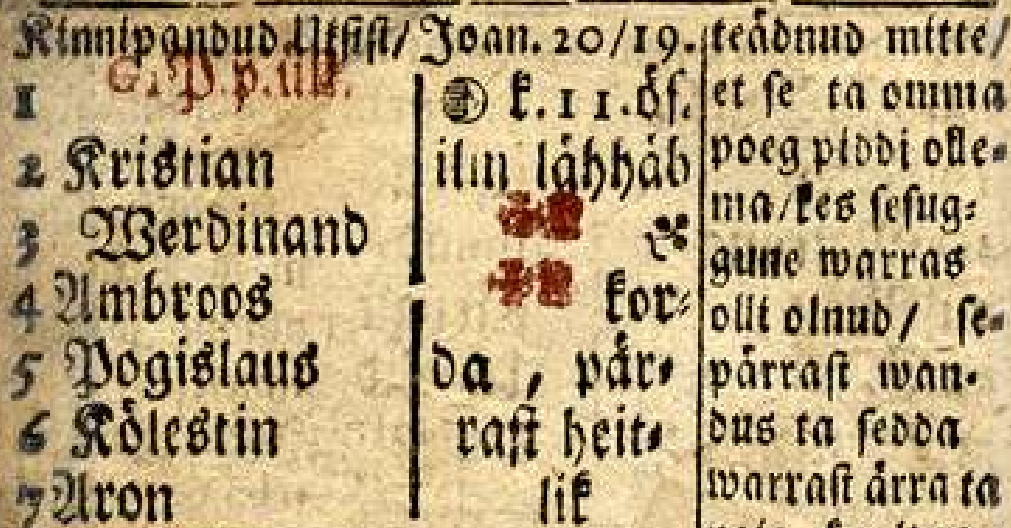 Kinnipandud Uksist/ Joan. 20/19.
G. 1. P. p. ült.
1
2 Kristian
3 Werdinand
4 Ambroos
5 Pogislaus
6 Kölestin
7 Aron
k. 11. öf.
ilm lähhäb
kor-
da, pär-
rast heit-
lik
teädnud mitte/
et se ta omma
poeg piddi olle-
ma/kes sesug-
gune warras
ollt olnud/ se-
pärrast wan-
dus ta sedda
warrast ärra ta